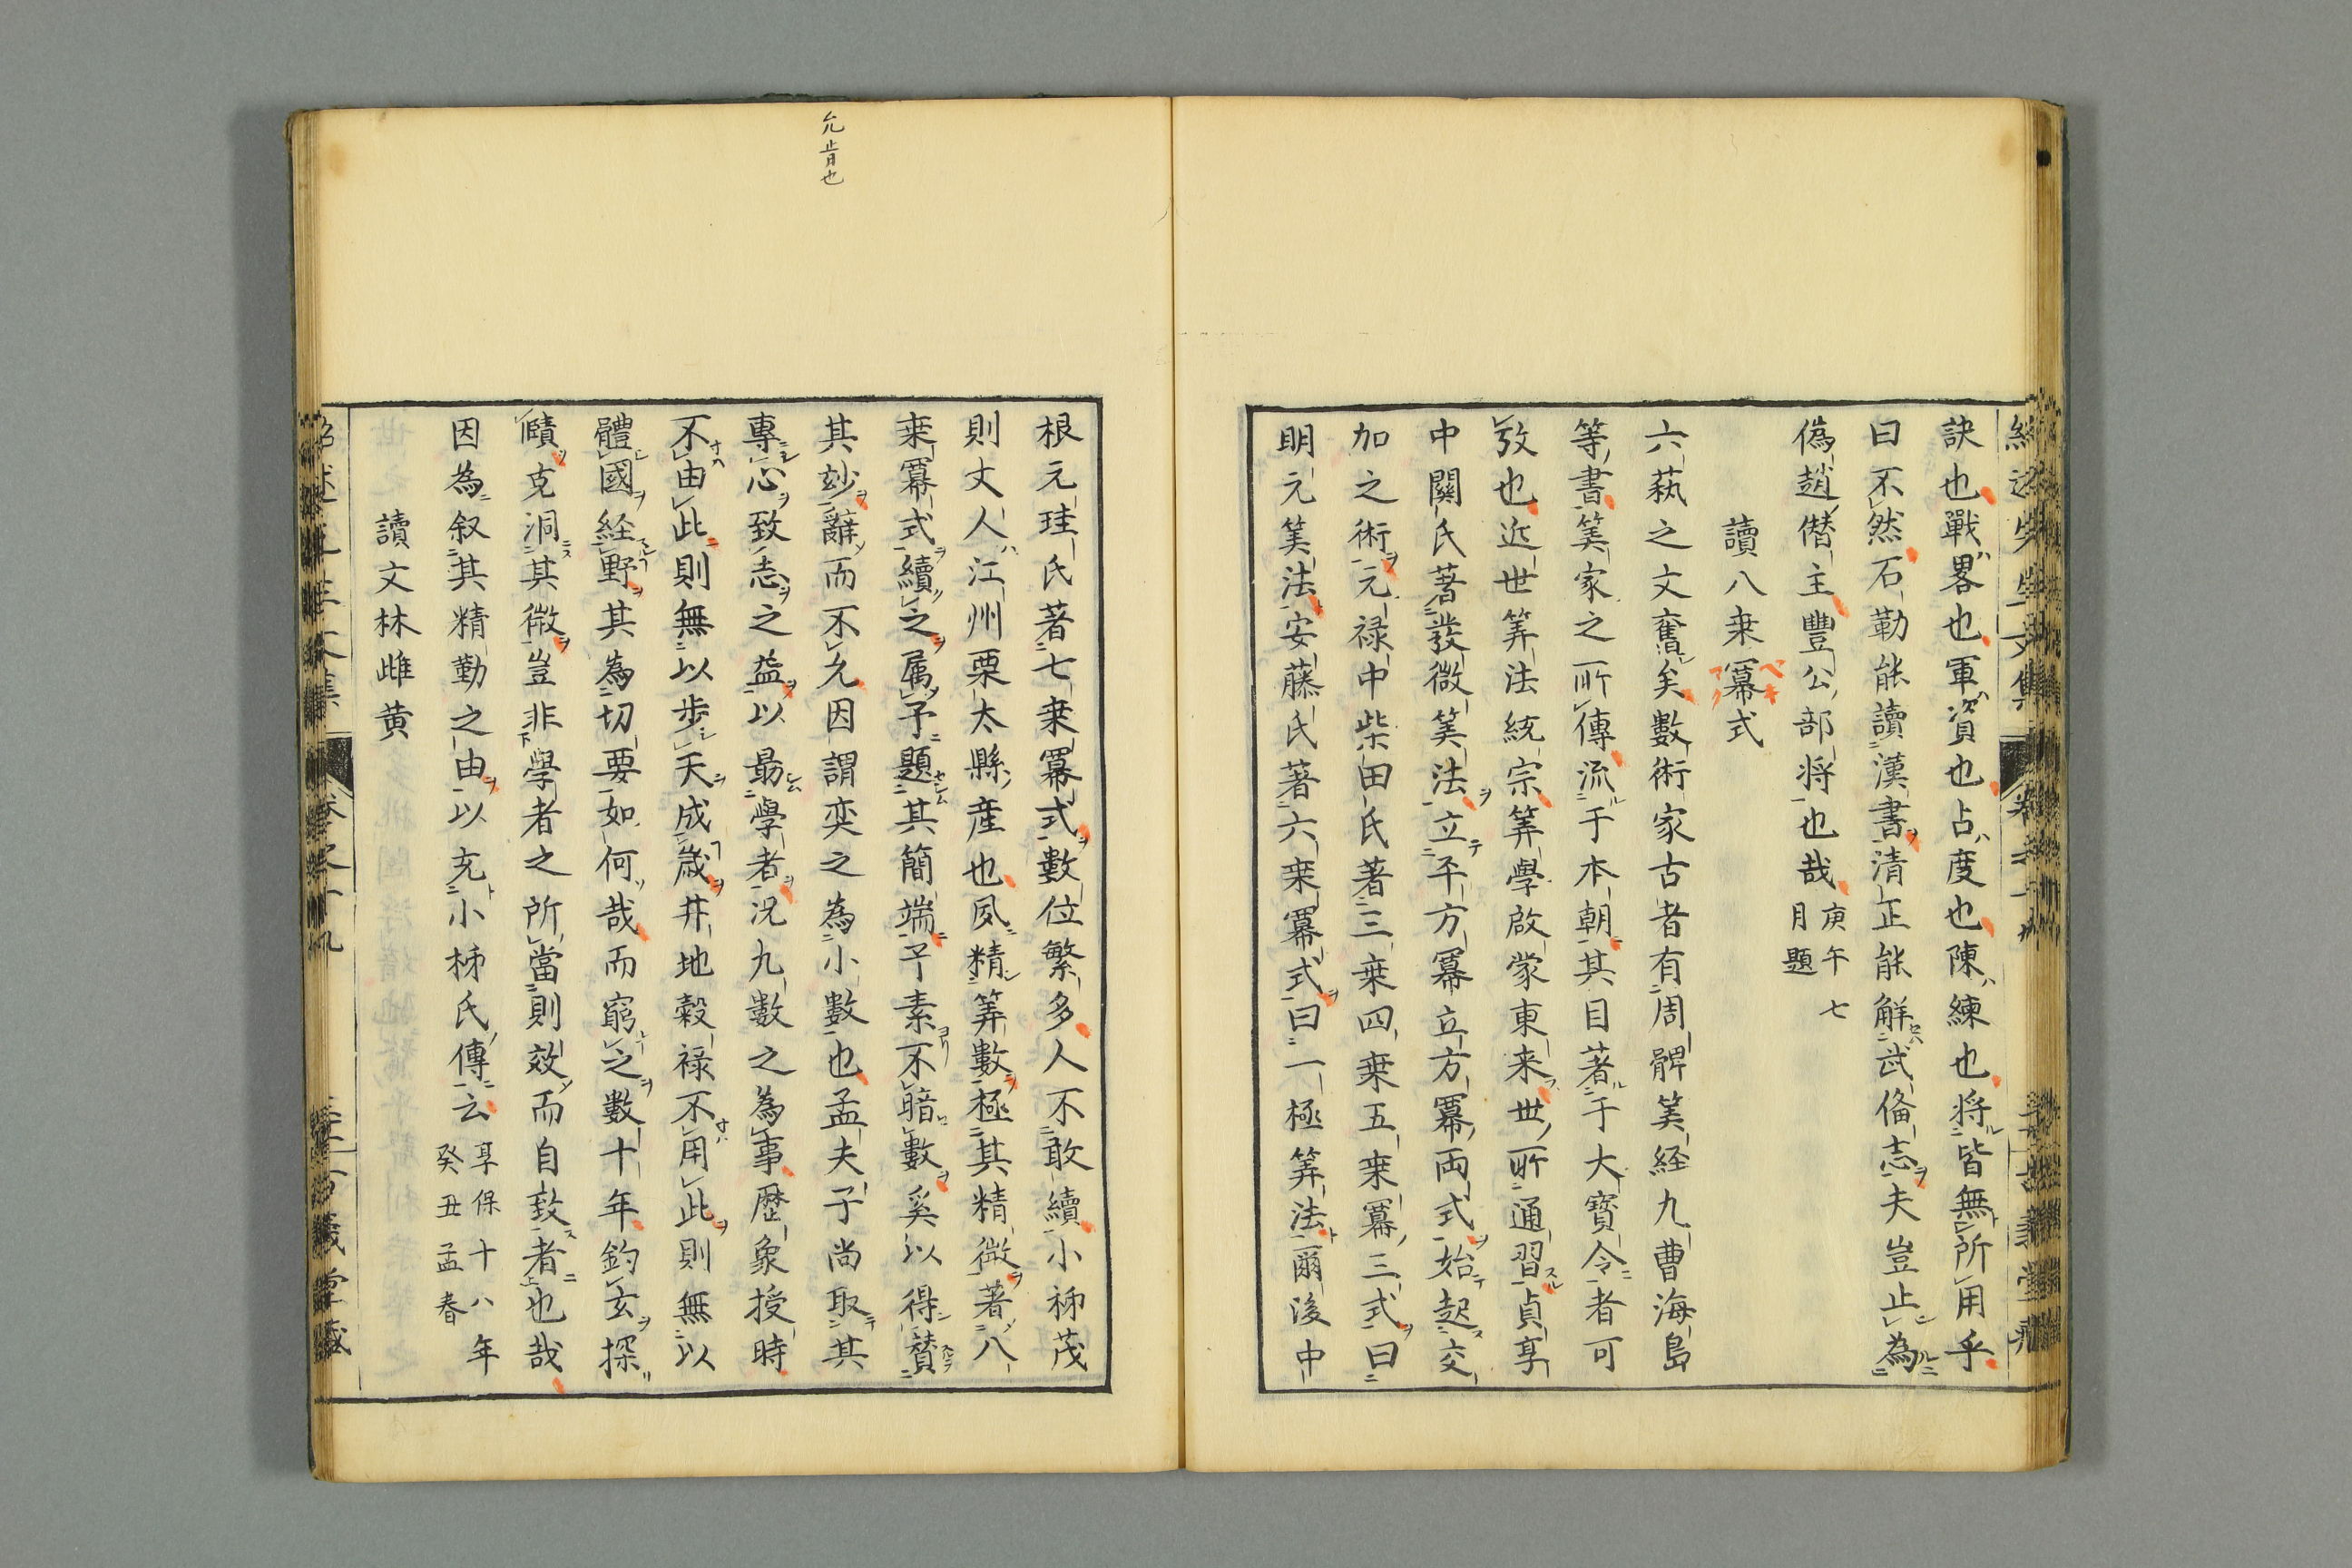 訣也戰畧也軍資也占度也陳練也将皆無所用乎
曰不然石勒能讀漢書清正能解武俻志夫豈止為
偽趙僭主豐公部将也哉庚午七
月題
讀八乗冪式
六藝之文奮矣數術家古者有周髀筭経九曹海島
等書筭家之所傳流于本朝其目著于大寶令者可
攷也近世筭法統宗筭學啟蒙東来世所通習貞享
中關氏著發微筭法立平方冪立方冪両式始起交
加之術元禄中柴田氏著三乗四乗五乗冪三式曰
明元筭法安藤氏著六乗冪式曰一極筭法爾後中
根元珪氏著七乗冪式數位繁多人不敢續小栁茂
則丈人江州栗太縣産也夙精筭數極其精微著八
乗冪式續之属予題其簡端予素不暗數奚以得賛
其玅辭而不允因謂奕之為小數也孟夫子尚取其
專心致志之益以朂學者况九數之為事歴象授時
不由此則無以歩天成歳井地穀禄不用此則無以
體國経野其為切要如何哉而窮之數十年釣玄探
賾克洞其微豈非學者之所當則效而自致者也哉
因為叙其精勤之由以充小栁氏傳云享保十八年
癸丑孟春
讀文林雌黄
允肯也